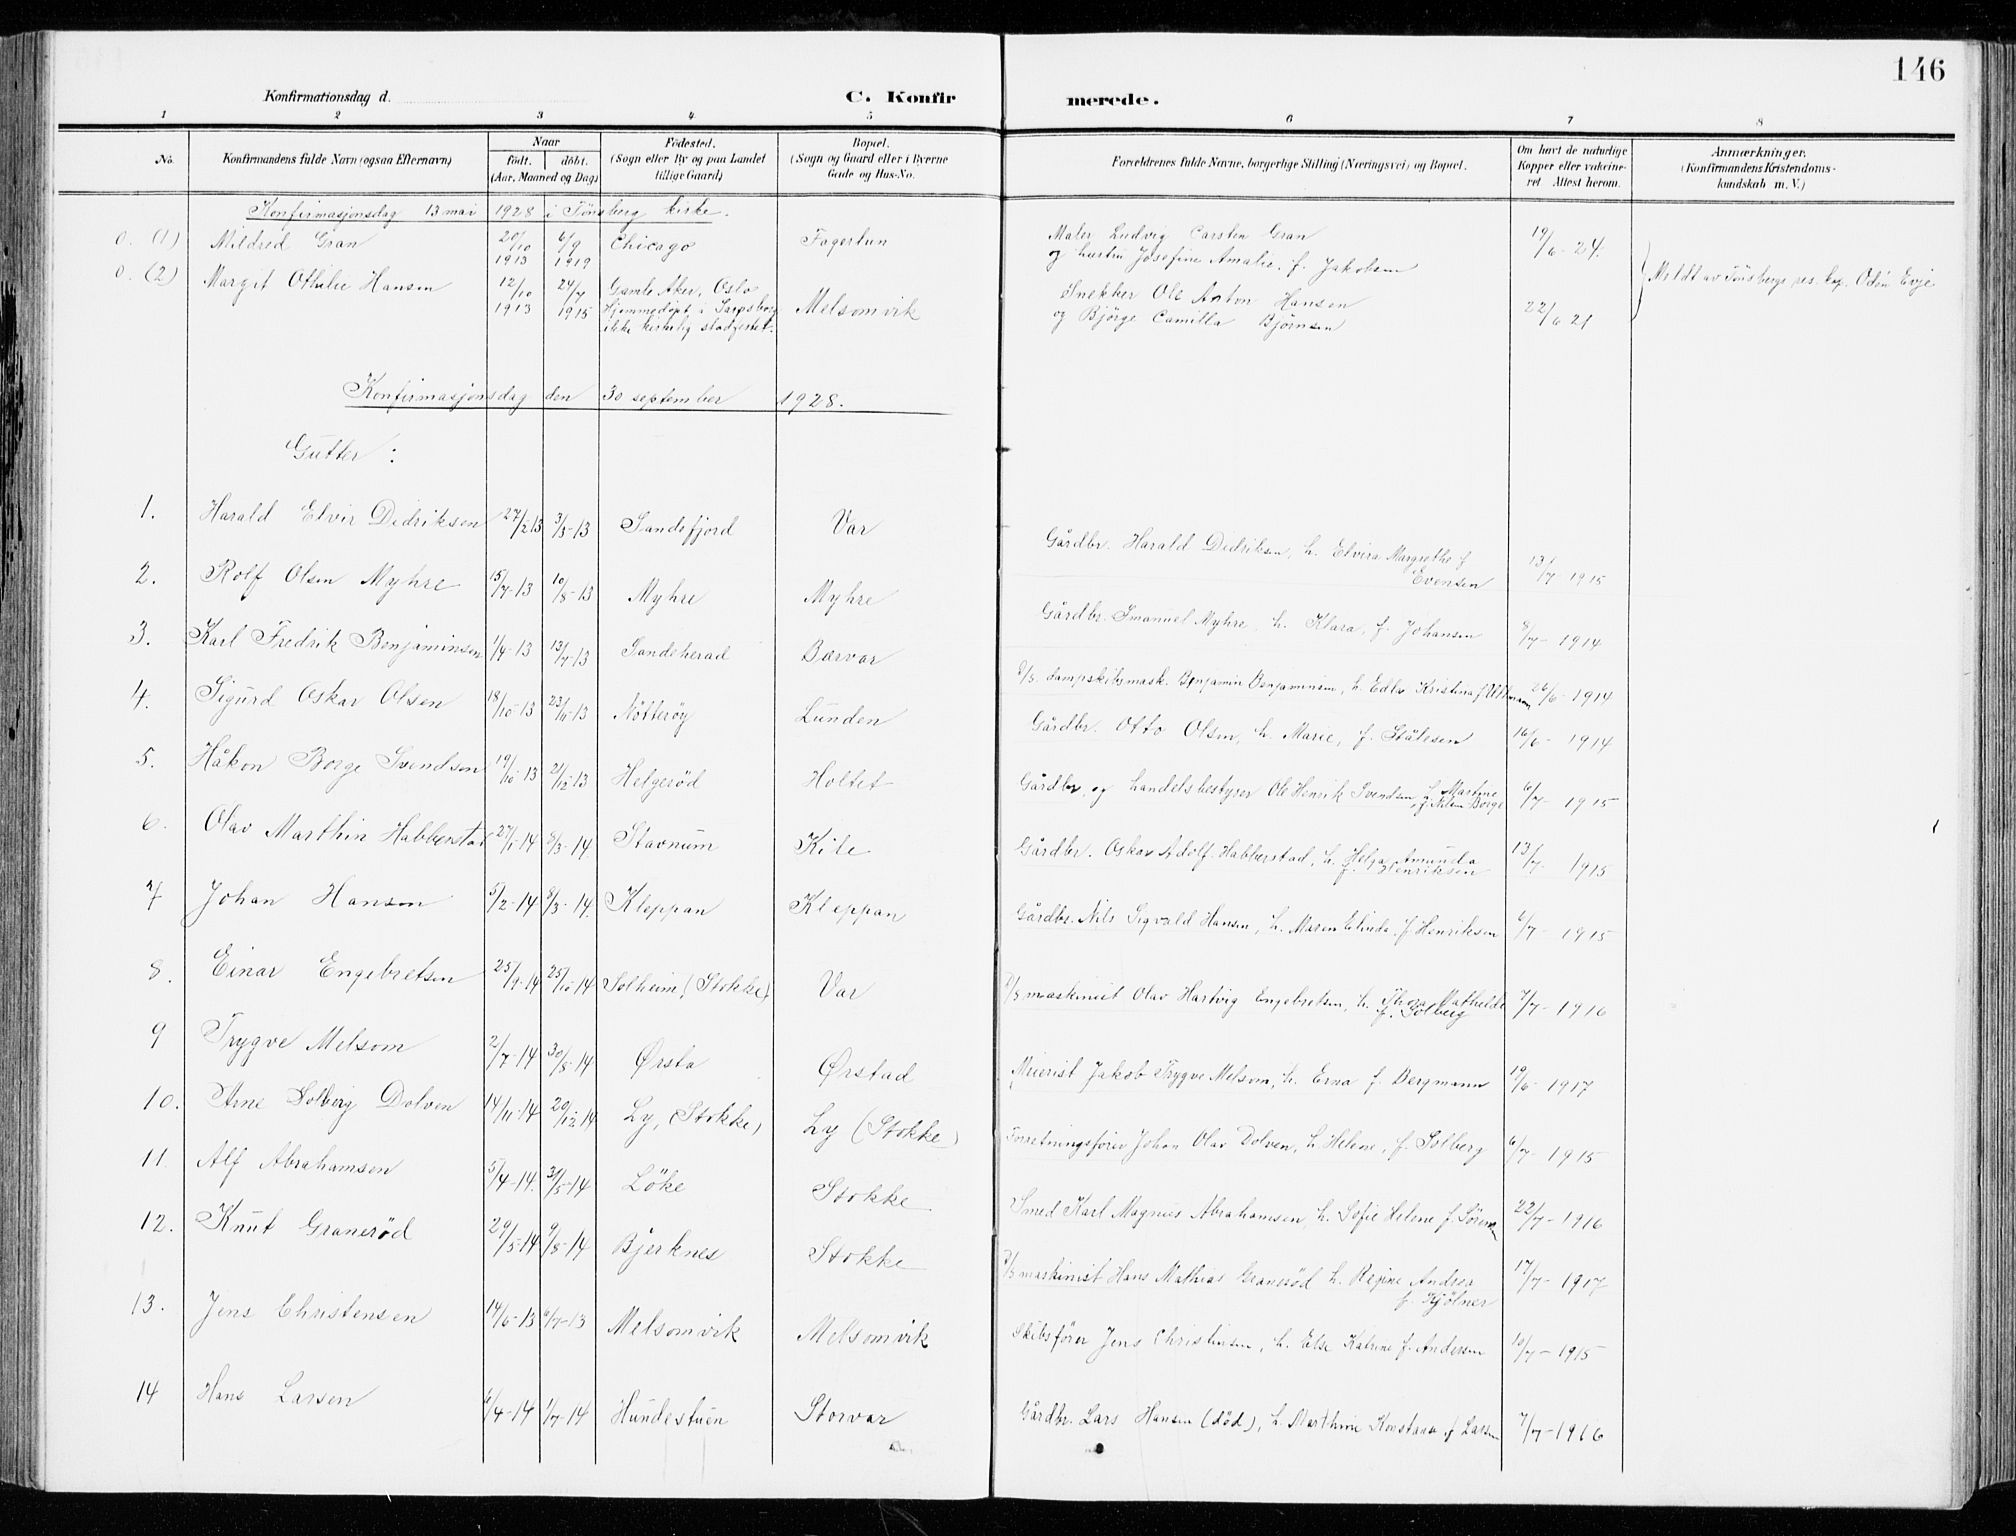 146
Konfirmationsdag d.
C. Konfir merede.
1 2 3 4 5 6 7 8
No. Konfirmandens fulde Navn (ogsaa Efternavn) Naar födt. döbt. (Aar, Maaned og Dag) Födested. (Sogn eller By og paa Landet tillige Gaard) Bopæl. (Sogn og Gaard eller i Byerne Gade og Hus-No. Forældrenes fulde Navne, borgerlige Stilling (Næringsvei) og Bopæl. Om havt de naturlige Kopper eller vakcineret Attest herom. Anmærkninger. (Konfirmandens Kristendomskundskab m. V.)
Konfirmasjonsdag 13 mai 1928 i Tönsberg kirke.
0. (1) Mildred Gran 20/10 1913 6/9 1919 Chicago Fagertun Maler Ludvig Carsten Gran 19/6-24.
og hustru Josefine Amalie, f. Jakobsen
0. (2) Margit Othilie Hansen 12/10 1913 24/7 1915 Gamle Aker, Oslo Melsomvik Snekker Ole Anton Hansen 22/6 21
Hjemmedöpt i Sarpsborg og Björge Camilla Björnsen
ikke kirkelig stadfestet.
Meldt av Tönsbergs res. kap. Odin Evje
Konfirmasjonsdag den 30 september 1928.
Gutter:
1. Harald Elvir Didriksen 27/2 13 3/3-13 Sandefjord Var Gårdbr. Harald Didriksen, h. Elvira Margrethe f. Evensen 13/7 1915
2. Rolf Olsen Myhre 15/7-13 10/8-13 Myhre Myhre Gårdbr. Emanuel Myhre, h. Klara, f. Johansen 8/7-1914
3. Karl Fredrik Benjaminsen 1/4-13 13/7-13 Sandeherad Bærvar dampskibsmask. Benjamin Benjaminsen, h. Edle Kristina f. 26/6-1914
4. Sigurd Oskar Olsen 18/10-13 23/11-13 Nötteröy Lunden Gårdbr. Otto Olsen, h. Marie, f. Stålesen 16/6-1914
5. Håkon Borge Svendsen 19/10-13 21/12 13 Helgeröd Holtet Gårdbr. og handelsbestyrer Ole Henrik Svendsen, h. Martine f. Borge 6/7-1915
6. Olav Marthin Habberstad 27/1-14 8/3-14. Stavnum Kile Gårdbr. Oskar Adolf Habberstad, h. Helga Amunda f. Henriksen 13/7 1915
7 Johan Hansen 5/2-14 8/3-14. Kleppan Kleppan Gårdbr. Nils Sigvald Hansen, h. Maren Elinda, f. Henriksen 6/7-1915
8. Einar Engebretsen 25/9-14 25/10-14 Solheim (Stokke) Var maskinist Olav Hartvig Engebretsen, h. Thora Mathilde f. Solberg 7/7-1916
9 Trygve Melsom 2/7-14 30/8-14 Ørsta Ørstad Meierist Jakob Trygve Melsom, h. Erna f. Bergmann 19/6-1917
10. Arne Solberg Dolven 14/11-14 20/12-14 Ly, (Stokke) Ly (Stokke) Forretningsförer Johan Olav Dolven, h. Helene, f. Solberg 6/7-1915
11. Alf Abrahamsen 5/4-14. 31/5-14 Löke Stokke Smed Karl Magnus Abrahamsen, h. Sofie Helene f. 22/7-1916
12. Knut Graneröd 29/5-14 9/8-14 Bjerknes Stokke maskinist Hans Mathias Graneröd h. Regine Andrea f. Kjölner 17/7-1917
13. Jens Christensen 14/6-13 6/7-13 Melsomvik Melsomvik Skibsförer Jens Christensen, h. Else Katrine f. Andersen 10/7-1915
14 Hans Larsen 6/4-14 1/7-14 Hundestuen Storvar Gårdbr. Lars Hansen (död), h. Marthine Konstanse f. Larsen 7/7-1916